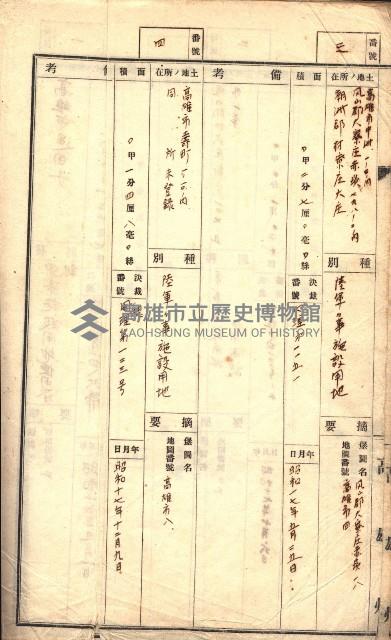 番號
三
土地ノ所在
高雄市中洲一一〇ノ内
鳳山郡大寮庄赤崁一八〇ノ内
潮州郡枋寮庄大庄
種別
陸軍々事施設用地
摘要
保圖名
鳳山郡大寮庄赤崁八
地圖番號
高雄市四
面積
〇甲二分七厘〇毫〇絲
決裁番號
年月日
備考
番號
四
土地ノ所在
高雄市壽町
同所未登錄
種別
陸軍々事施設用地
摘要
保圖名
地圖番號
高雄市八
面積
〇甲一分四厘八毫〇絲
決裁番號
第一三三号
年月日
昭和十七年十二月九日
備考
高雄市立歷史博物館
KAOHSIUNG MUSEUM OF HISTORY
高雄州